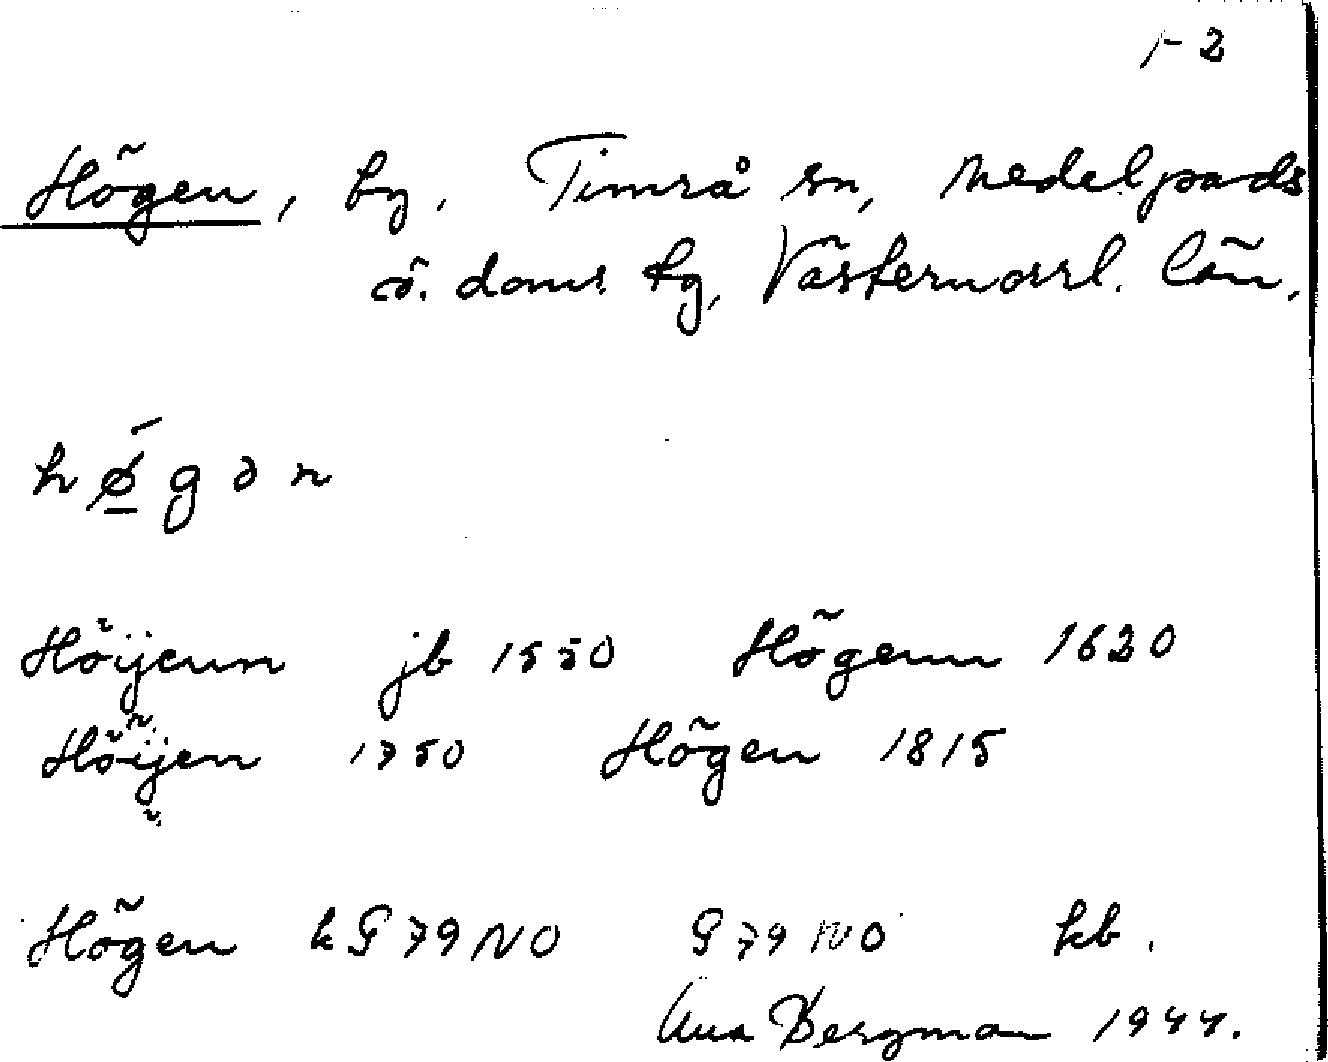 1-2
Högen, by. Timrå sn, Medelpads
ö. doms. tg, Västernorrl. län.
hǿ̱gən
Höijenn jb 1550 Högenn 1620
Höijen 1750 Högen 1815
Högen k G 79 NO G 79 NO kb.
Bergman 1944.